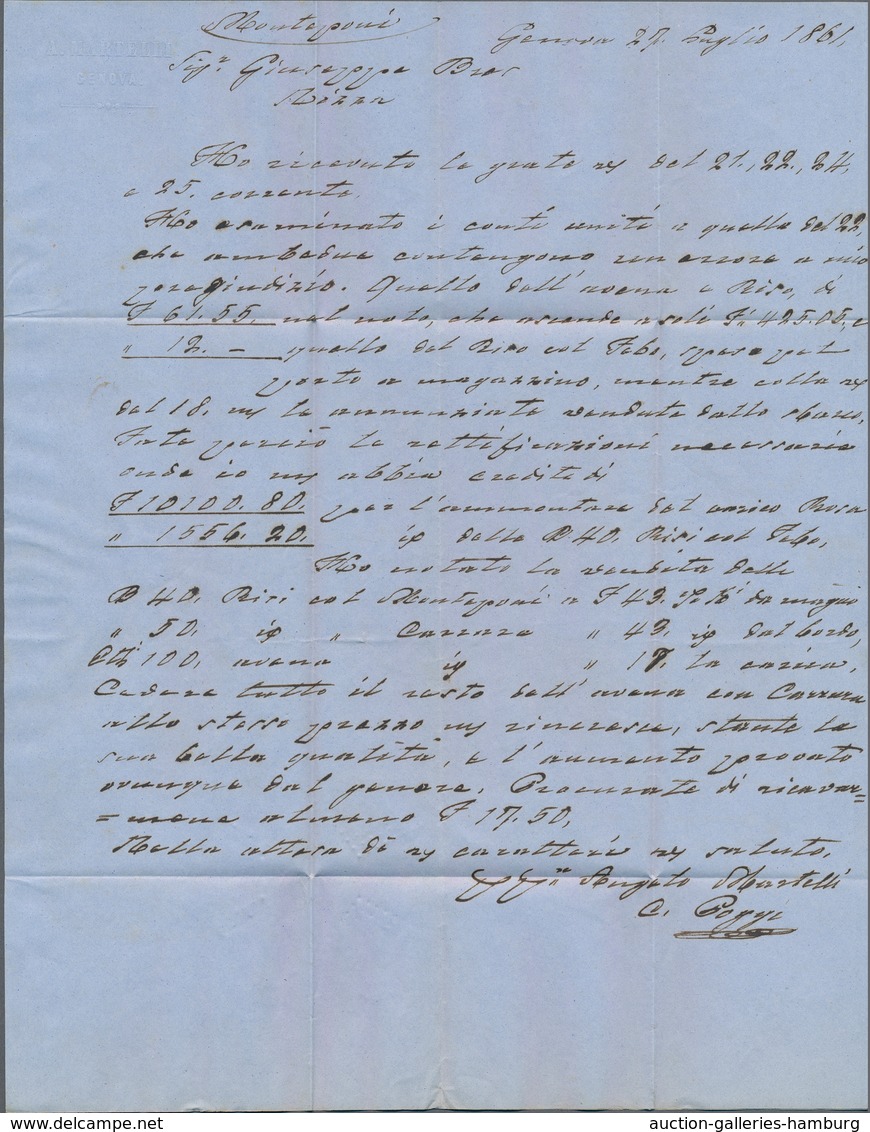 Monteponi
Genova 27. Luglio 1861.
A. MARTELLI
GENOVA
Sigr. Giuseppe Bres
Nizza
Ho ricevuto le grate vs del 21., 22., 24,
e 25. corrente.
Ho esaminato i conti uniti a quella del 22,
che ambedue contengono un errore a mio
pregiudizio. Quello dell' avena e Riso, di
F 61. 55. nel nolo, che ascende a soli F. 425.05, e
" 12. — quello del Riso col Febo, spese pel
porto a magazzino, mentre colla vs
del 18. la annunziate vendute dallo sbarco.
Fate perciò le rettificazioni necessarie
onde io abbia credito di
F 10100. 80. per l'ammontare del carico Rosa
" 1556. 20. delle B 40. Risi col Febo,
Ho notato la vendita delle
B 40. Risi col Monteponi a F 43. da magno
" 50. " Carrara " 43. dal bordo,
100. avena " 17. la carica.
Cedere tutto il resto dell' avena con Carrara
allo stesso prezzo rincresce, stante la
sua bella qualità, e l' aumento provato
ovunque dal genere. Procurate di ricavar=
=mene almeno F 17. 50.
Nella attesa di vs caratteri vs saluto.
Angelo Martelli
C. Poggi
auction-galleries-hamburg